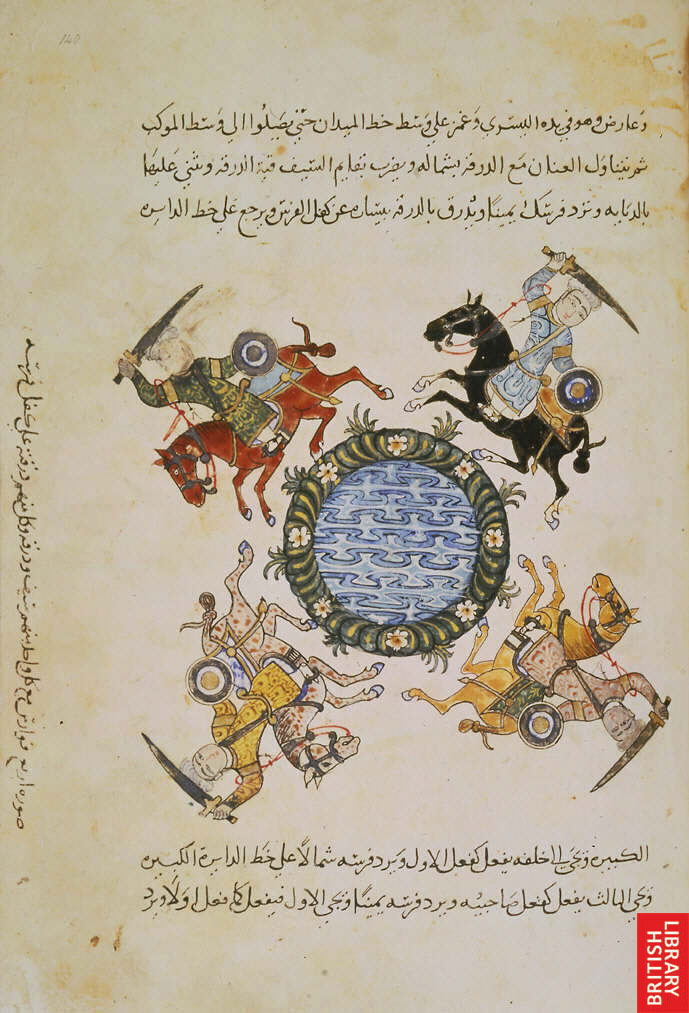 140
وعارض وهو في يده اليسري وغمز علي وسط خط الميدان حتي يصلوا الي وسط الموكب
ثم يتناول العنان مع الدرقه بشماله ويضرب بقايم السيف قبة الدرقه ويثني عليها
بالدبابه ويرد فرسك يمينًا ويدرق بالدرقه بيساره عن كفل الفرس ويرجع علي خط الدايره
صورة اربع فوارس مع كل واحد منهم سيف ودرقه وكل منهم درقته علي كفل فرسه
الكبيره ويجي الي خلفه يفعل كفعل الاول ويرد فرسه شمالًا علي خط الدايرة الكبيره
ويجي الثالث يفعل كفعل صاحبيه ويرد فرسه يمينًا ويجي الاول فيفعل كما فعل اولًا ويرد
BRITISH
LIBRARY